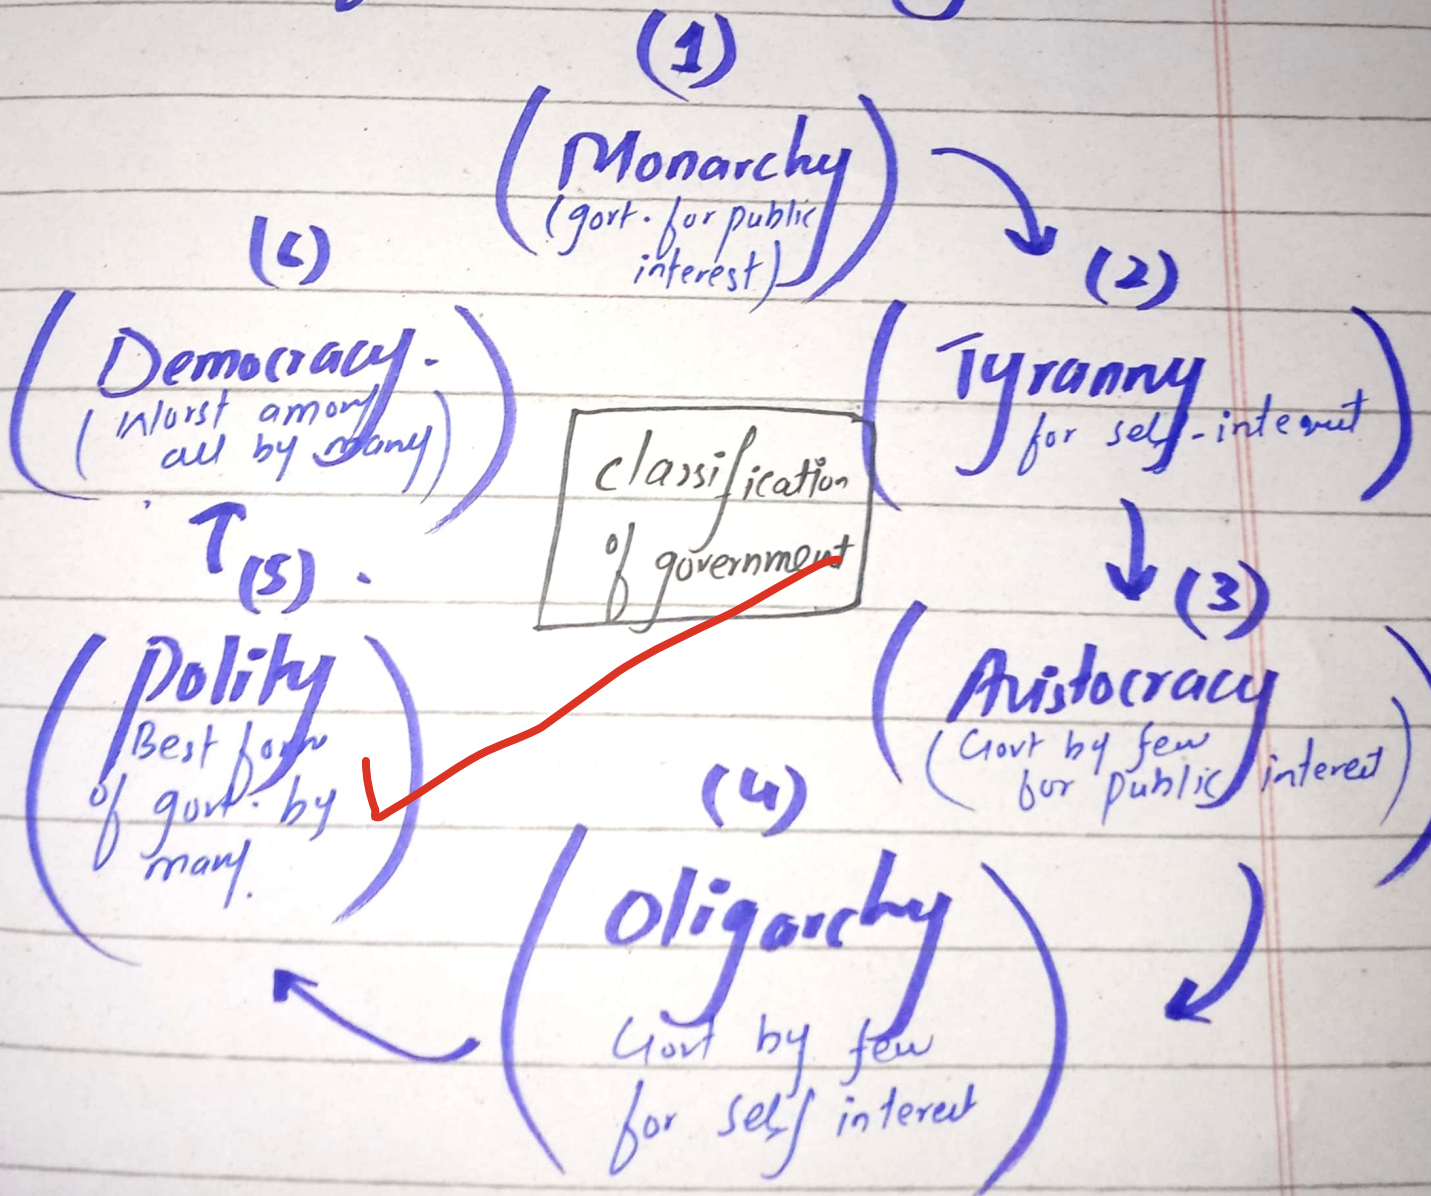 (1)
Monarchy
(govt. for public
interest)
(2)
Tyranny
for self-interest
(3)
Aristocracy
(Govt by few
for public interest)
(4)
Oligarchy
Govt by few
for self interest
(5)
Polity
Best form
of govt. by
many.
(6)
Democracy.
(Worst among
all by many)
classification
of government